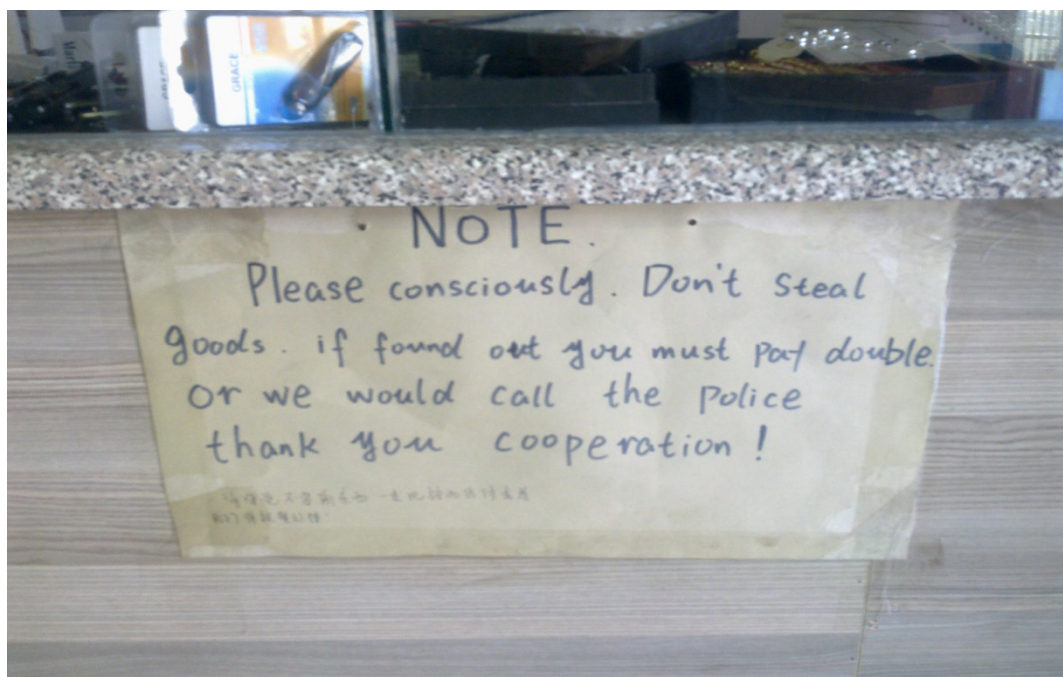 GRACE
NOTE.
Please consciously. Don't steal
goods. if found out you must pay double.
or we would call the police
thank you cooperation!